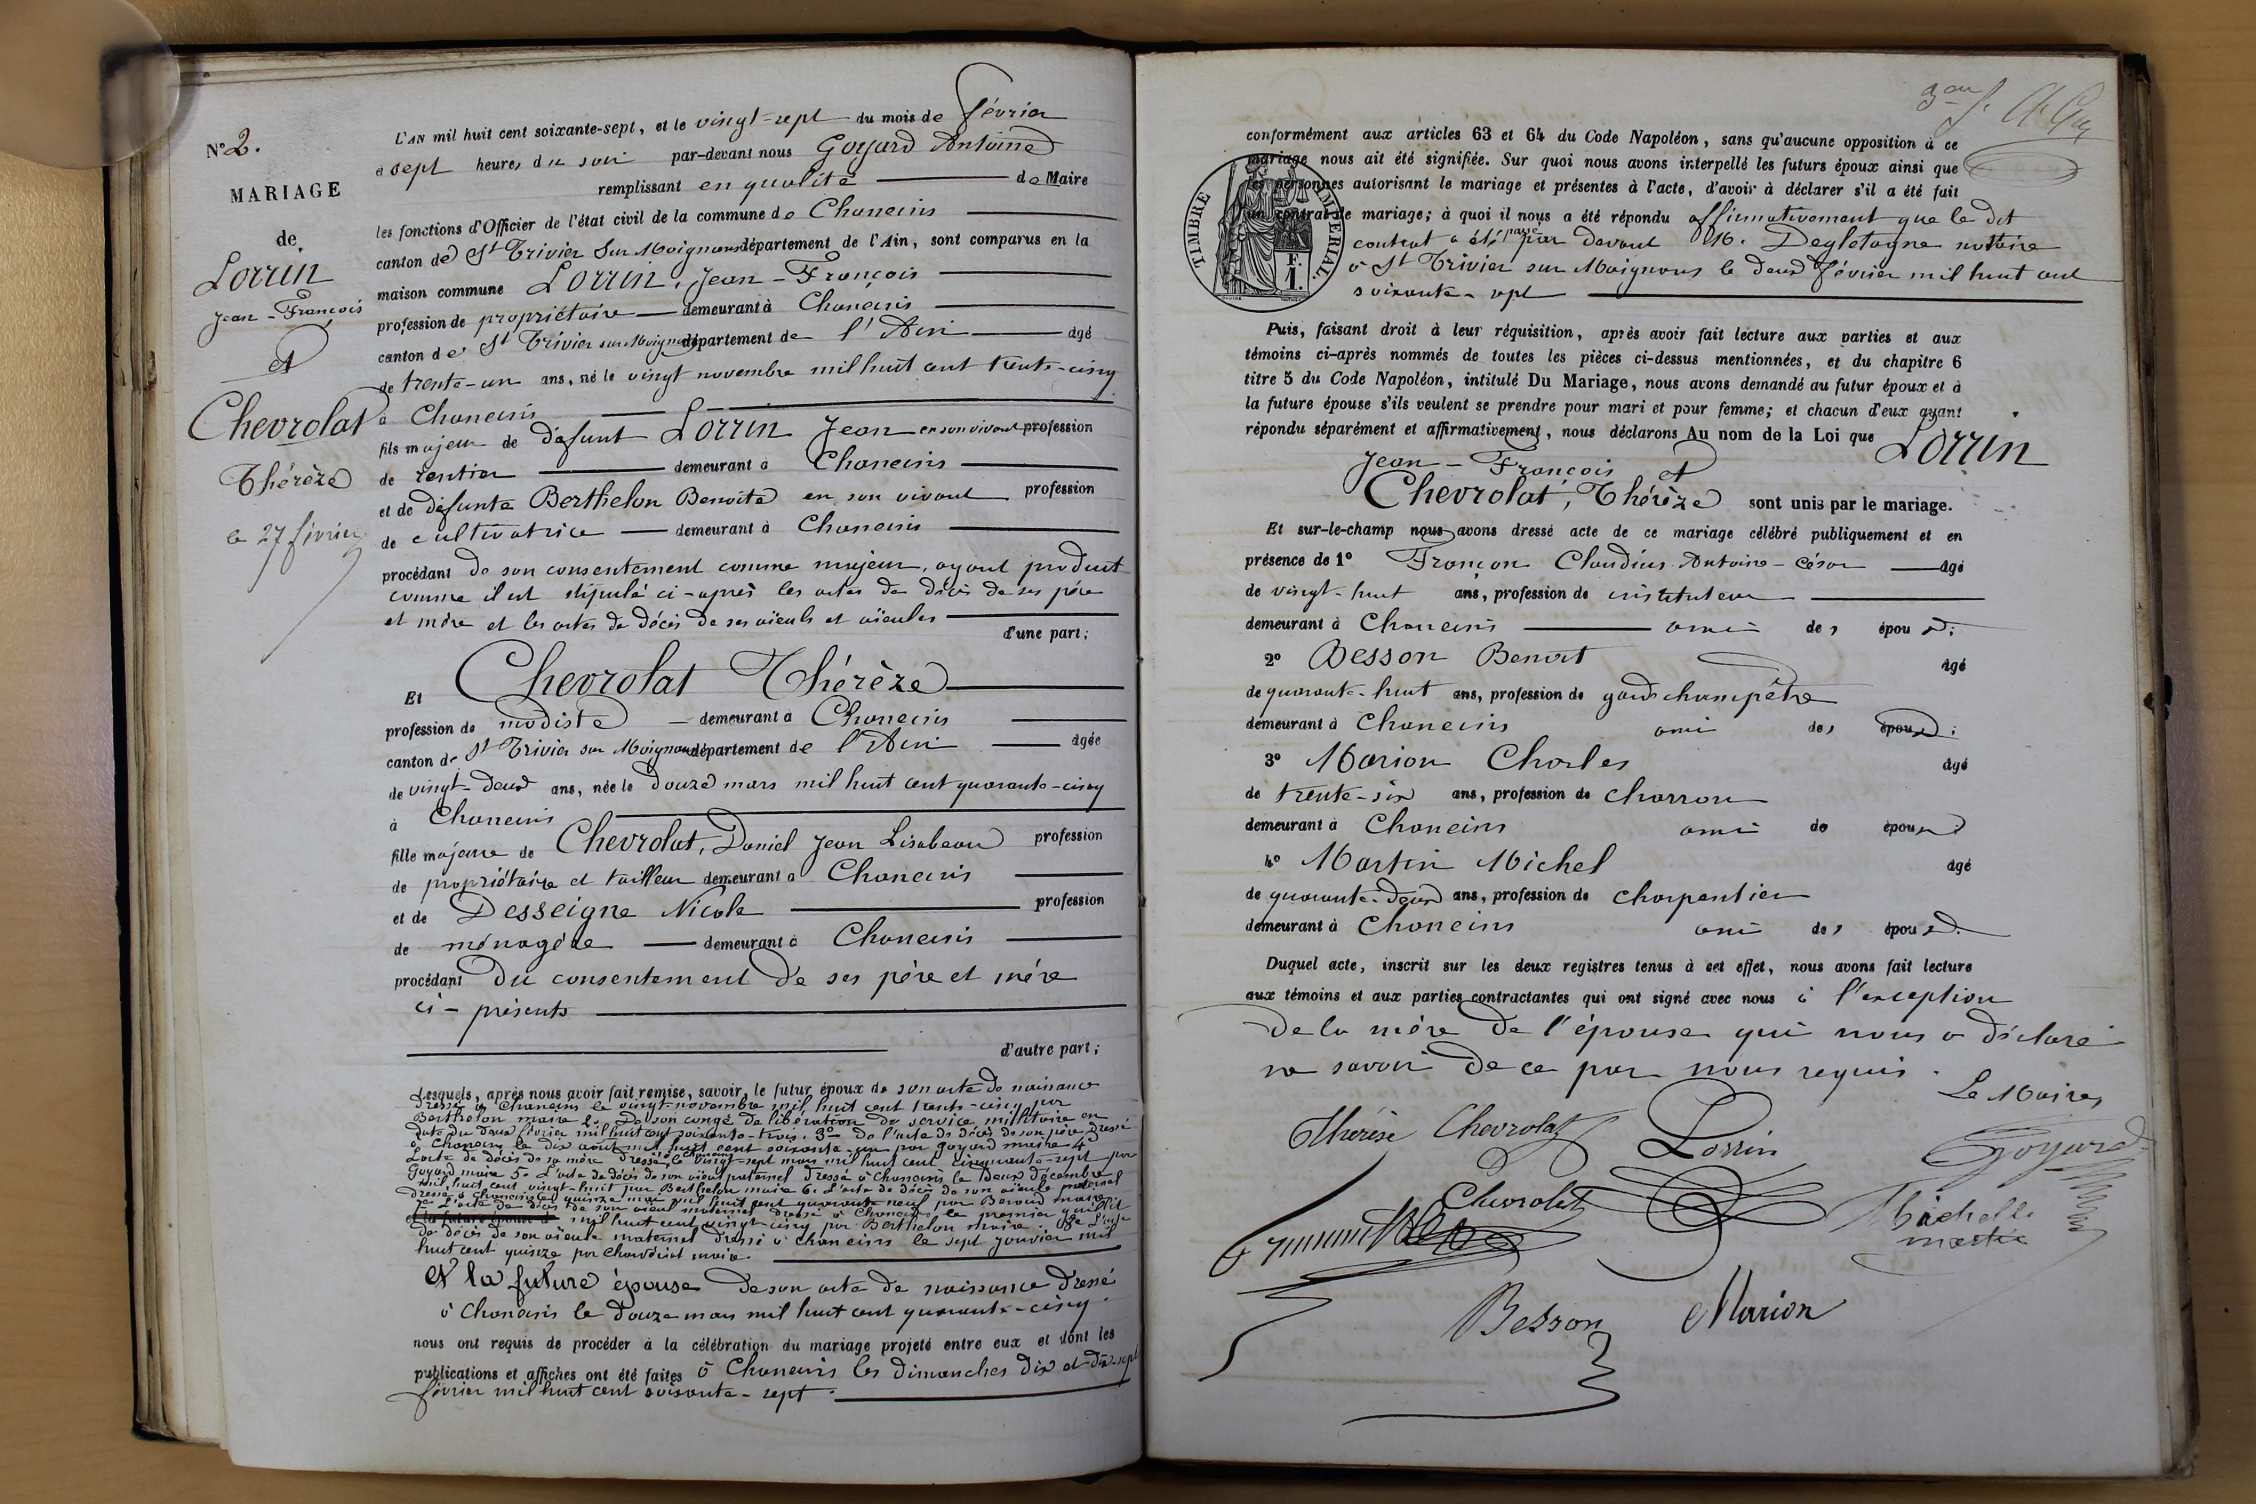 N° 2.
MARIAGE
de
Lorrin
Jean-François
et
Chevrolat
Thérèze
le 27 février
L'AN mil huit cent soixante-sept, et le vingt-sept du mois de février
à sept heures du soir par-devant nous Goyard Antoine
remplissant en qualité de Maire
les fonctions d'Officier de l'état civil de la commune de Chaneins
canton de St Trivier sur Moignans département de l'Ain, sont comparus en la
maison commune Lorrin, Jean-François
profession de propriétaire demeurant à Chaneins
canton de St Trivier sur Moignans département de l'Ain âgé
de trente-un ans, né le vingt novembre mil huit cent trente-cinq
à Chaneins
fils majeur de défunt Lorrin Jean en son vivant profession
de rentier demeurant à Chaneins
et de défunte Berthelon Benoite en son vivant profession
de cultivatrice demeurant à Chaneins
procédant de son consentement comme majeur, ayant produit
comme il est stipulé ci-après les actes de décès de ses père
et mère et les actes de décès de ses aïeuls et aïeules
d'une part;
Et Chevrolat Thérèze
profession de modiste demeurant à Chaneins
canton de St Trivier sur Moignans département de l'Ain âgée
de vingt-deux ans, née le douze mars mil huit cent quarante-cinq
à Chaneins
fille majeure de Chevrolat, Daniel Jean Lisabeau profession
de propriétaire et tailleur demeurant à Chaneins
et de Desseigne Nicole profession
de ménagère demeurant à Chaneins
procédant du consentement de ses père et mère
ci-présents
d'autre part;
Lesquels, après nous avoir fait remise, savoir, le futur époux de son acte de naissance
dressé à Chaneins le vingt novembre mil huit cent trente-cinq par
Berthelon maire 2° de son congé de libération du service militaire en
date du deux février mil huit cent soixante-trois. 3° de l'acte de décès de son père dressé
à Chaneins le dix août mil huit cent soixante-un par Goyard maire 4°
L'acte de décès de sa mère dressé à Chaneins le vingt-sept mars mil huit cent cinquante-sept par
Goyard maire 5° L'acte de décès de son aïeul paternel dressé à Chaneins le deux décembre
mil huit cent vingt-huit par Berthelon maire 6° L'acte de décès de son aïeule paternel
dressé à Chaneins le quinze mai mil huit cent quarante neuf par Bernard maire
7° L'acte de décès de son aïeul maternel dressé à Chaneins le premier juillet
et la future épouse d mil huit cent vingt-cinq par Berthelon maire. 8° L'acte
de décès de son aïeule maternel dressé à Chaneins le sept janvier mil
huit cent quinze par maire.
et la future épouse de son acte de naissance dressé
à Chaneins le douze mars mil huit cent quarante-cinq.
nous ont requis de procéder à la célébration du mariage projeté entre eux et dont les
publications et affiches ont été faites à Chaneins les dimanches dix et dix-sept
février mil huit cent soixante-sept.
TIMBRE IMPÉRIAL.
F.
1.
conformément aux articles 63 et 64 du Code Napoléon, sans qu'aucune opposition à ce
mariage nous ait été signifiée. Sur quoi nous avons interpellé les futurs époux ainsi que
les personnes autorisant le mariage et présentes à l'acte, d'avoir à déclarer s'il a été fait
un contrat de mariage; à quoi il nous a été répondu affirmativement que le dit
contrat a été passé par devant M. Degletagne notaire
à St Trivier sur Moignans le deux février mil huit cent
soixante-sept
Puis, faisant droit à leur réquisition, après avoir fait lecture aux parties et aux
témoins ci-après nommés de toutes les pièces ci-dessus mentionnées, et du chapitre 6
titre 5 du Code Napoléon, intitulé Du Mariage, nous avons demandé au futur époux et à
la future épouse s'ils veulent se prendre pour mari et pour femme; et chacun d'eux ayant
répondu séparément et affirmativement, nous déclarons Au nom de la Loi que Lorrin
Jean-François et
Chevrolat, Thérèze sont unis par le mariage.
Et sur-le-champ nous avons dressé acte de ce mariage célébré publiquement et en
présence de 1° Françon Claudius Antoine-César âgé
de vingt-huit ans, profession de instituteur
demeurant à Chaneins ami des époux;
2° Besson Benoît âgé
de quarante-huit ans, profession de garde champêtre
demeurant à Chaneins ami des époux;
3° Marion Charles âgé
de trente-six ans, profession de charron
demeurant à Chaneins ami de époux
4° Martin Michel âgé
de quarante-deux ans, profession de charpentier
demeurant à Chaneins ami des époux.
Duquel acte, inscrit sur les deux registres tenus à cet effet, nous avons fait lecture
aux témoins et aux parties contractantes qui ont signé avec nous à l'exception
de la mère de l'épouse qui nous a déclaré
ne savoir de ce par nous requis.
Le Maire,
Thérèse Chevrolat Lorrin Goyard
Chevrolat
Michelle
martin
Besson Marion